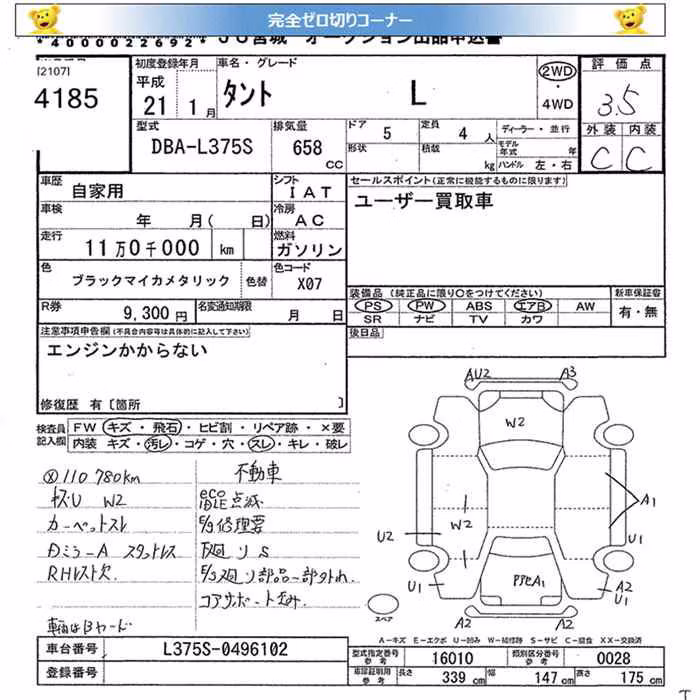 完全ゼロ切りコーナー
*4000022692* JU宮城 オークション出品申込書
[2107]
4185
初度登録年月
平成
21 1月
車名・グレード
タント L
2WD
・
4WD
評価点
3.5
外装 内装
C C
型式
DBA-L375S
排気量
658
CC
ドア 5
形状
定員 4 人
積載 kg
ディーラー・並行
モデル年式 年
ハンドル 左・右
車歴
自家用
シフト
IAT
セールスポイント(正常に機能するものに限ります)
ユーザー買取車
車検
年 月( 日)
冷房
AC
走行
11万0千000 km
燃料
ガソリン
色
ブラックマイカメタリック
色替
色コード
X07
装備品 (純正品に限り○をつけてください)
PS PW ABS エアB AW
SR ナビ TV カワ
新車保証書
有・無
R券
9,300円
名変通知期限
月 日
後日品
注意事項申告欄(不具合内容等は具体的に記入して下さい)
エンジンかからない
修復歴 有〔箇所 〕
検査員
記入欄
FW キズ・飛石・ヒビ割・リペア跡・×要
内装 キズ・汚レ・コゲ・穴・スレ・キレ・破レ
Ⓧ110780km
キズU W2
カーペットスレ
Dミラ-A スタットレス
RHレスト欠
不動車
eco
IDLE点滅
E/g修理要
下廻りS
E/g廻り部品一部外れ
コアサポート歪み
AU2 A3
W2
A1
W2
U2 U1
U1 A2
PPEA1
A2 A2
スペア
A-キズ E-エクボ U-凹み W-補修跡 S-サビ C-腐食 XX-交換済
車台番号
L375S-0496102
登録番号
型式指定番号
参考
16010
類別区分番号
参考
0028
車庫証明用
参考
長さ 339 cm
幅 147 cm
高さ 175 cm
T